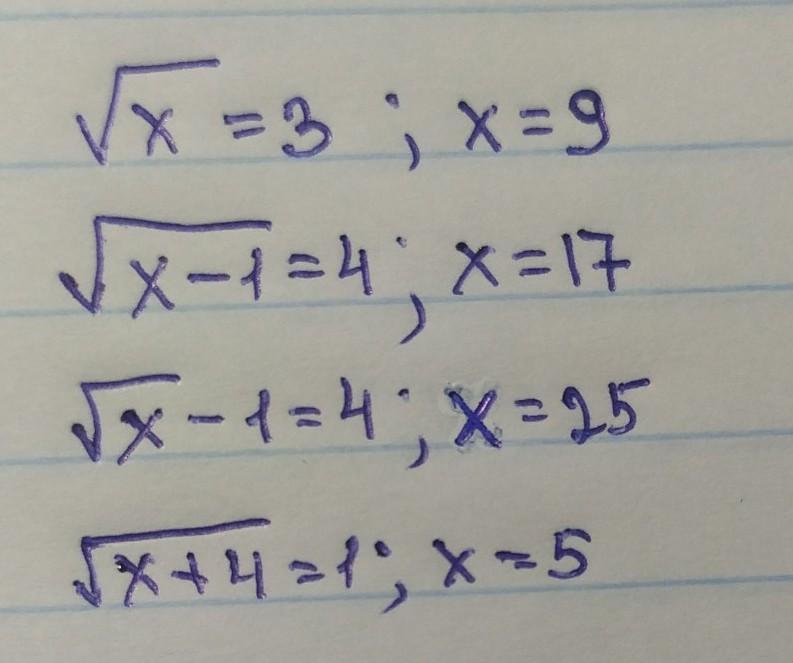 √x = 3 ; x = 9
√(x-1) = 4 ; x = 17
√x - 1 = 4 ; x = 25
√(x+4) = 1 ; x = 5